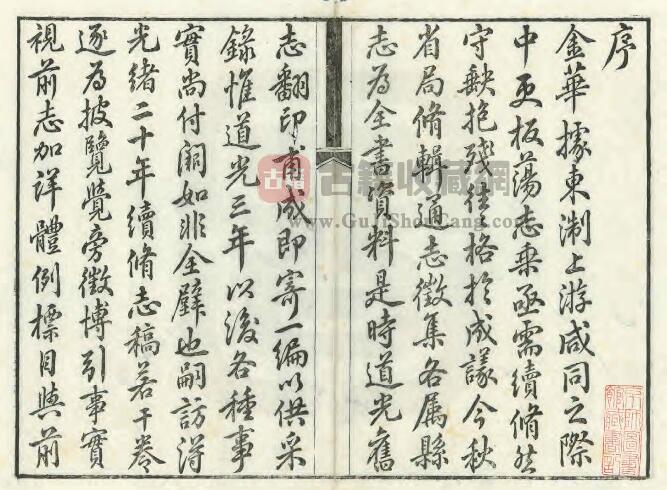 序
金華據東淛上游咸同之際
中更板蕩志乘亟需續脩然
守缺抱殘往格於成議今秋
省局脩輯通志徵集各属縣
志為全書資料是時道光舊
志翻印甫成即寄一編以供采
錄惟道光三年以後各種事
實尚付闕如非全璧也嗣訪得
光緒二十年續脩志稿若干卷
逐為披覽覺旁徵博引事實
視前志加詳體例標目與前
古籍收藏網
www.GuJiShouCang.com